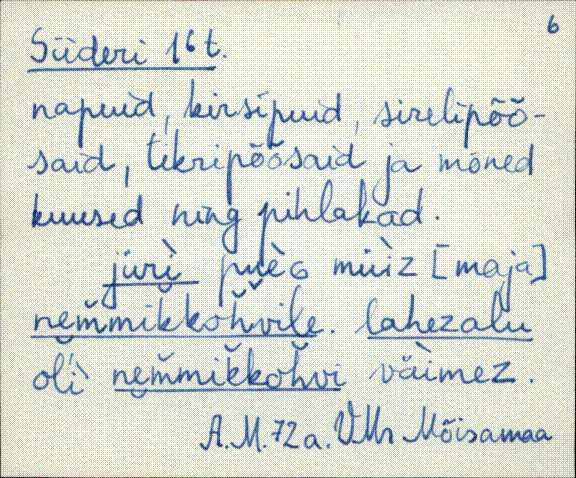 6
Süderi 16 t.
napuid, kirsipuid, sirelipõõ-
said, tikripõõsaid ja mõned
kuused ning pihlakad.
jüri müiz [maja]
nem̆mikkoh̆vile. lahezalu
oli nem̆mik̆koh̆vi väimez.
A.M. 72 a. VMr Mõisamaa